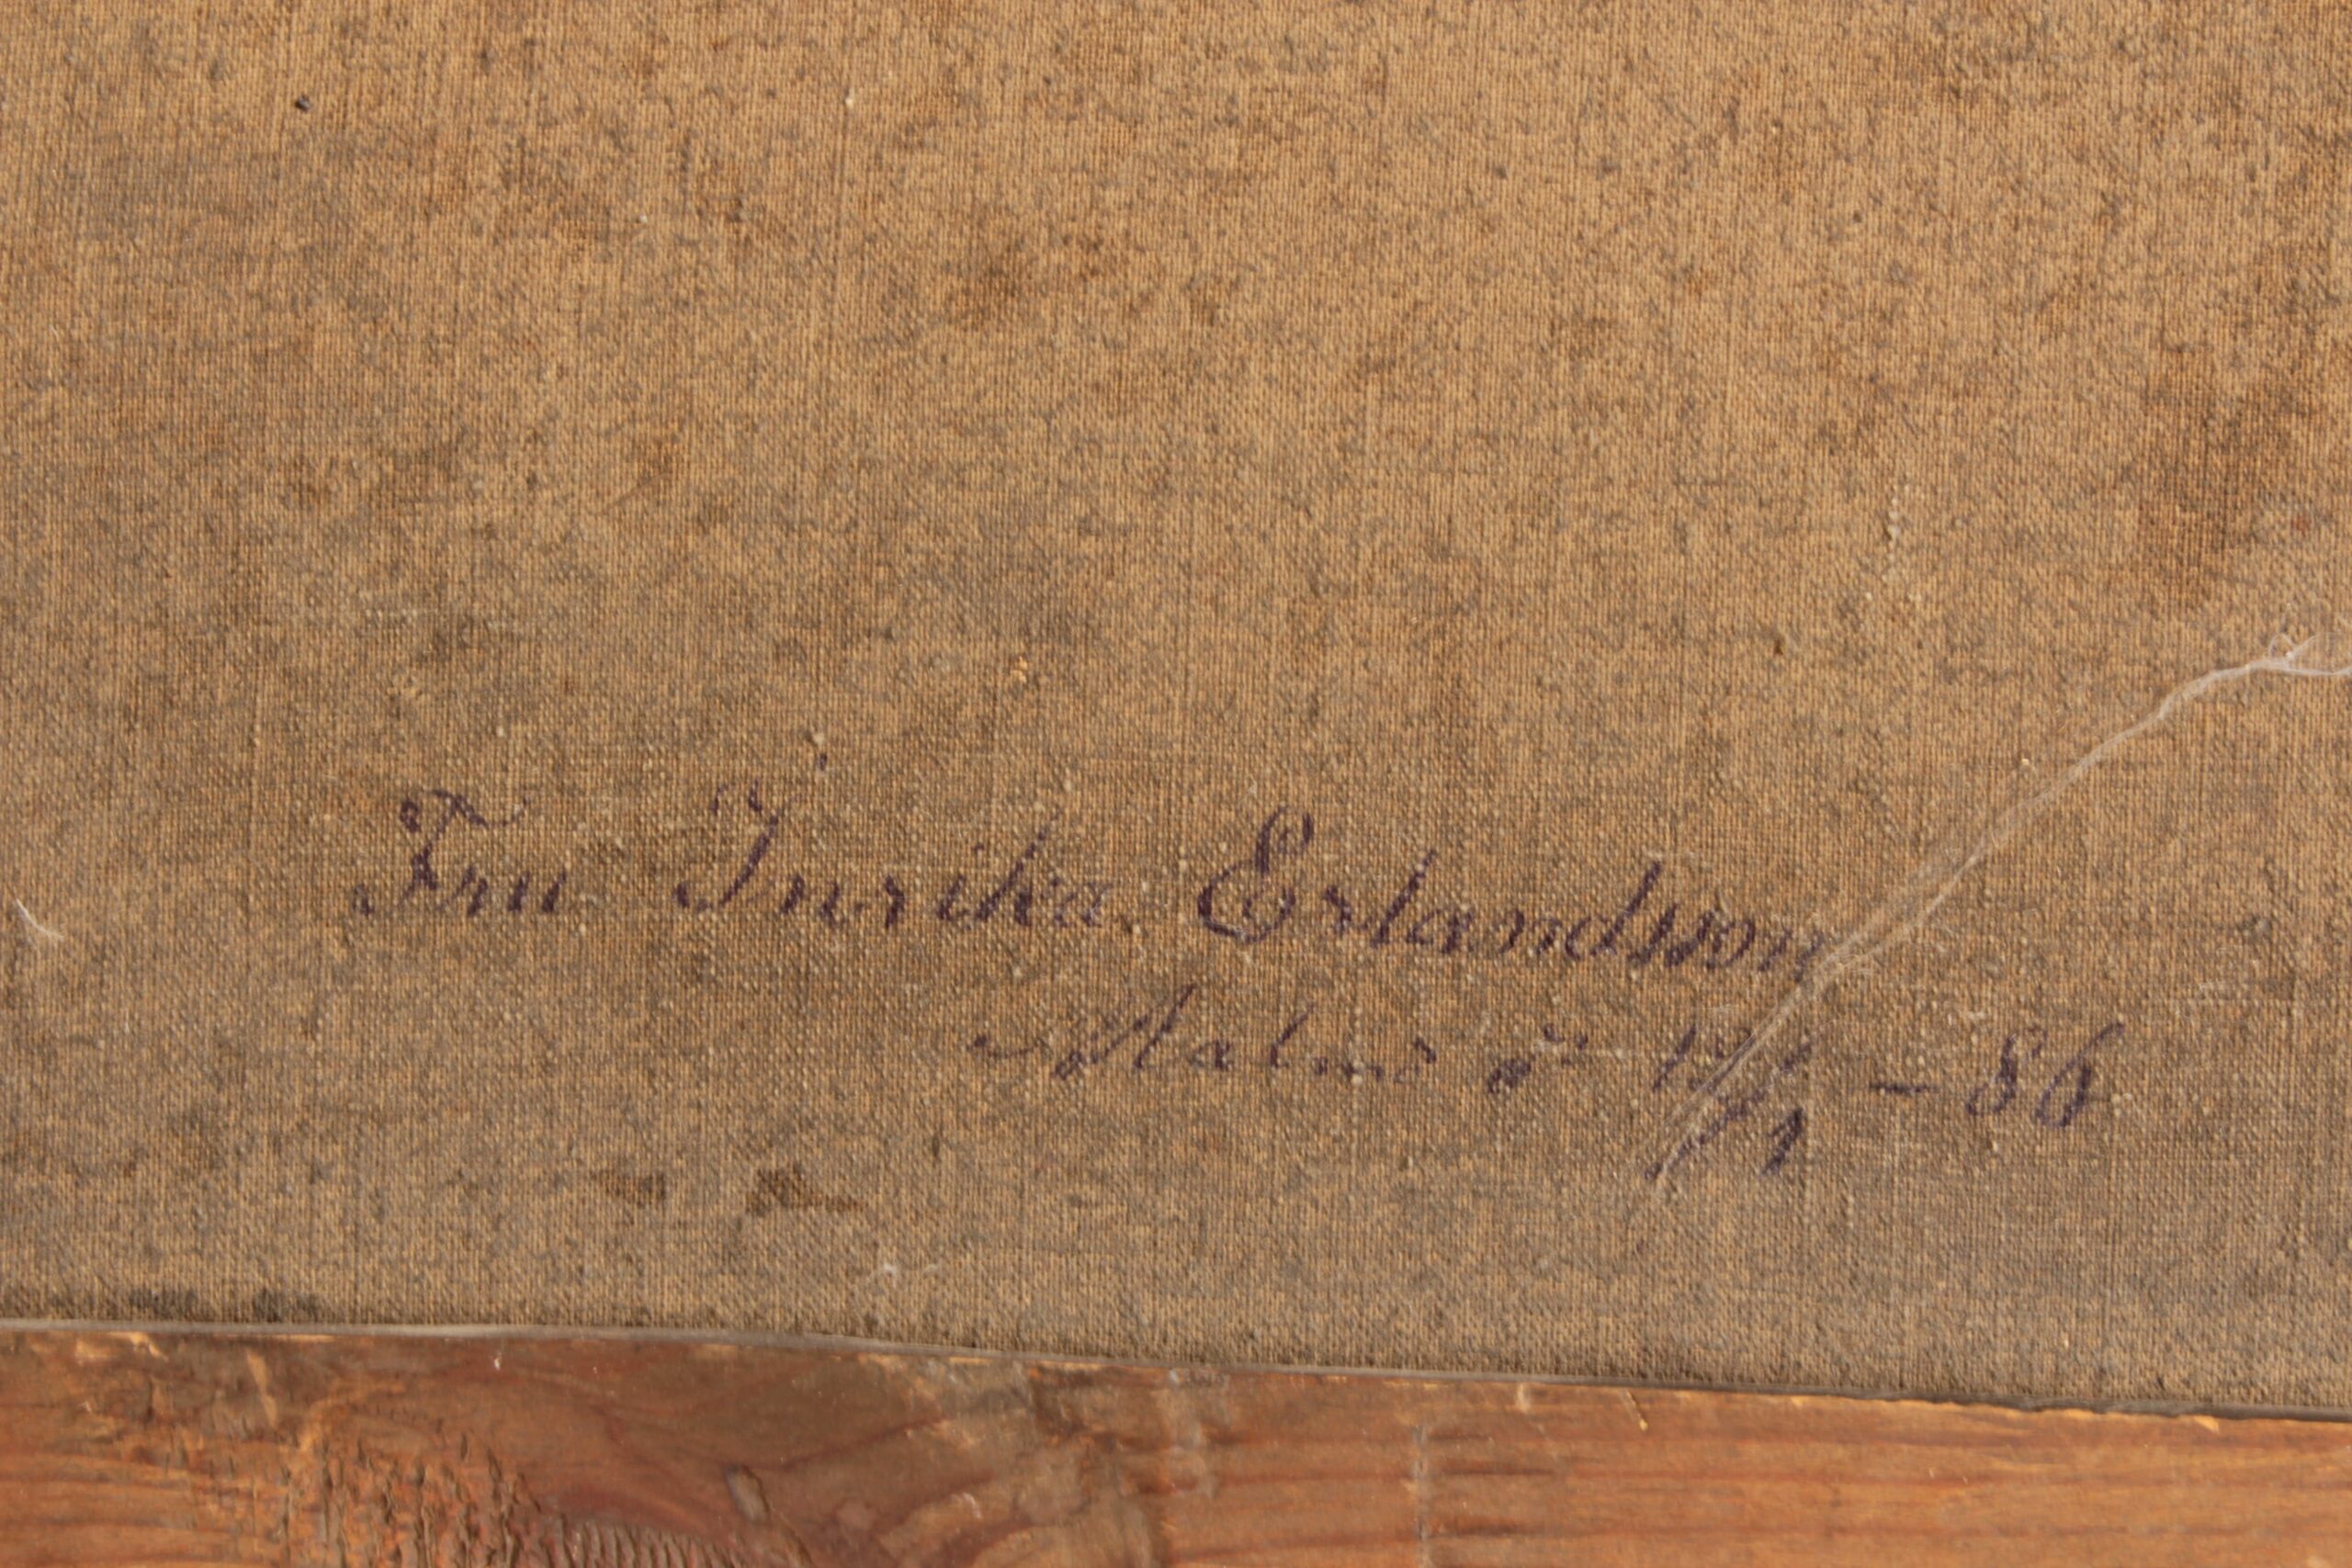 Fru Inrika Erlandsson
Malmö d. 1/1 - 86